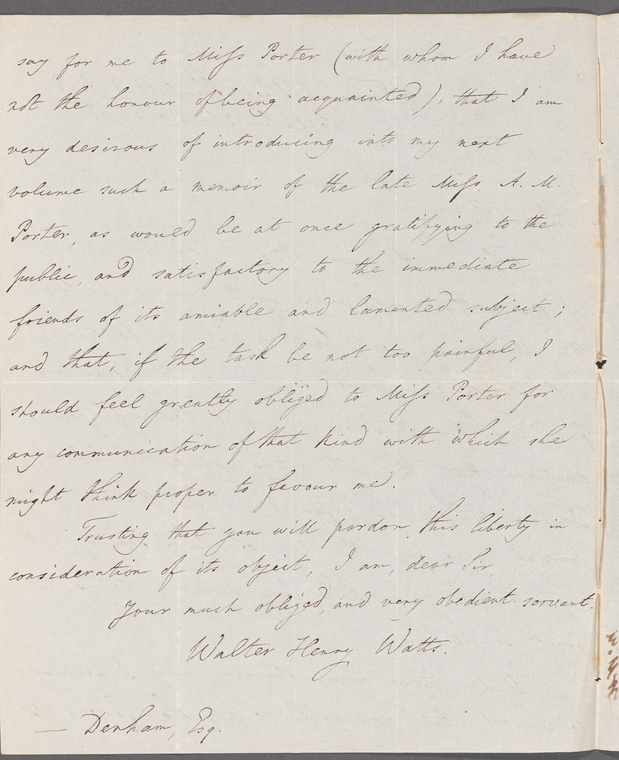 say for me to Miss Porter (with whom I have
not the honour of being acquainted), that I am
very desirous of introducing into my next
volume such a memoir of the late Miss A. M.
Porter, as would be at once gratifying to the
public, and satisfactory to the immediate
friends of its amiable and lamented subject;
and that, if the task be not too painful, I
should feel greatly obliged to Miss Porter for
any communication of that kind with which she
might think proper to favour me.
Trusting that you will pardon this liberty in
consideration of its object, I am, dear Sir,
Your much obliged, and very obedient servant.
Walter Henry Watts.
— Denham, Esq.